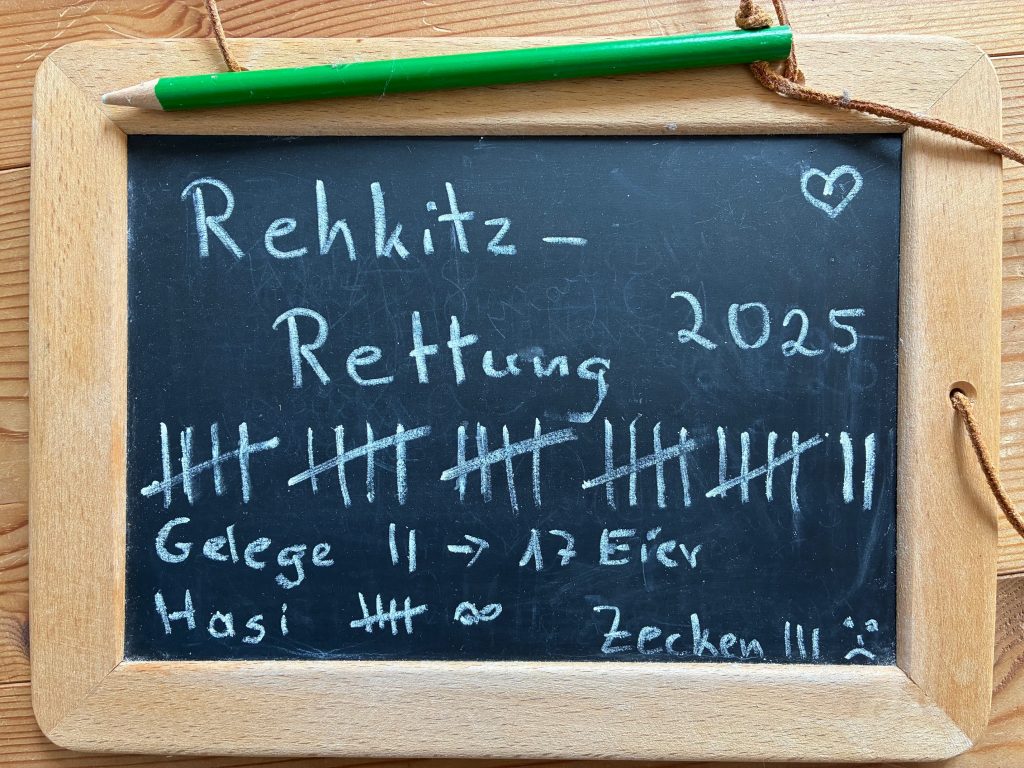 Rehkitz-
Rettung 2025
𝍸 𝍸 𝍸 𝍸 𝍸 ||
Gelege || → 17 Eier
Hasi 𝍸 ∞ Zecken ||| ☹